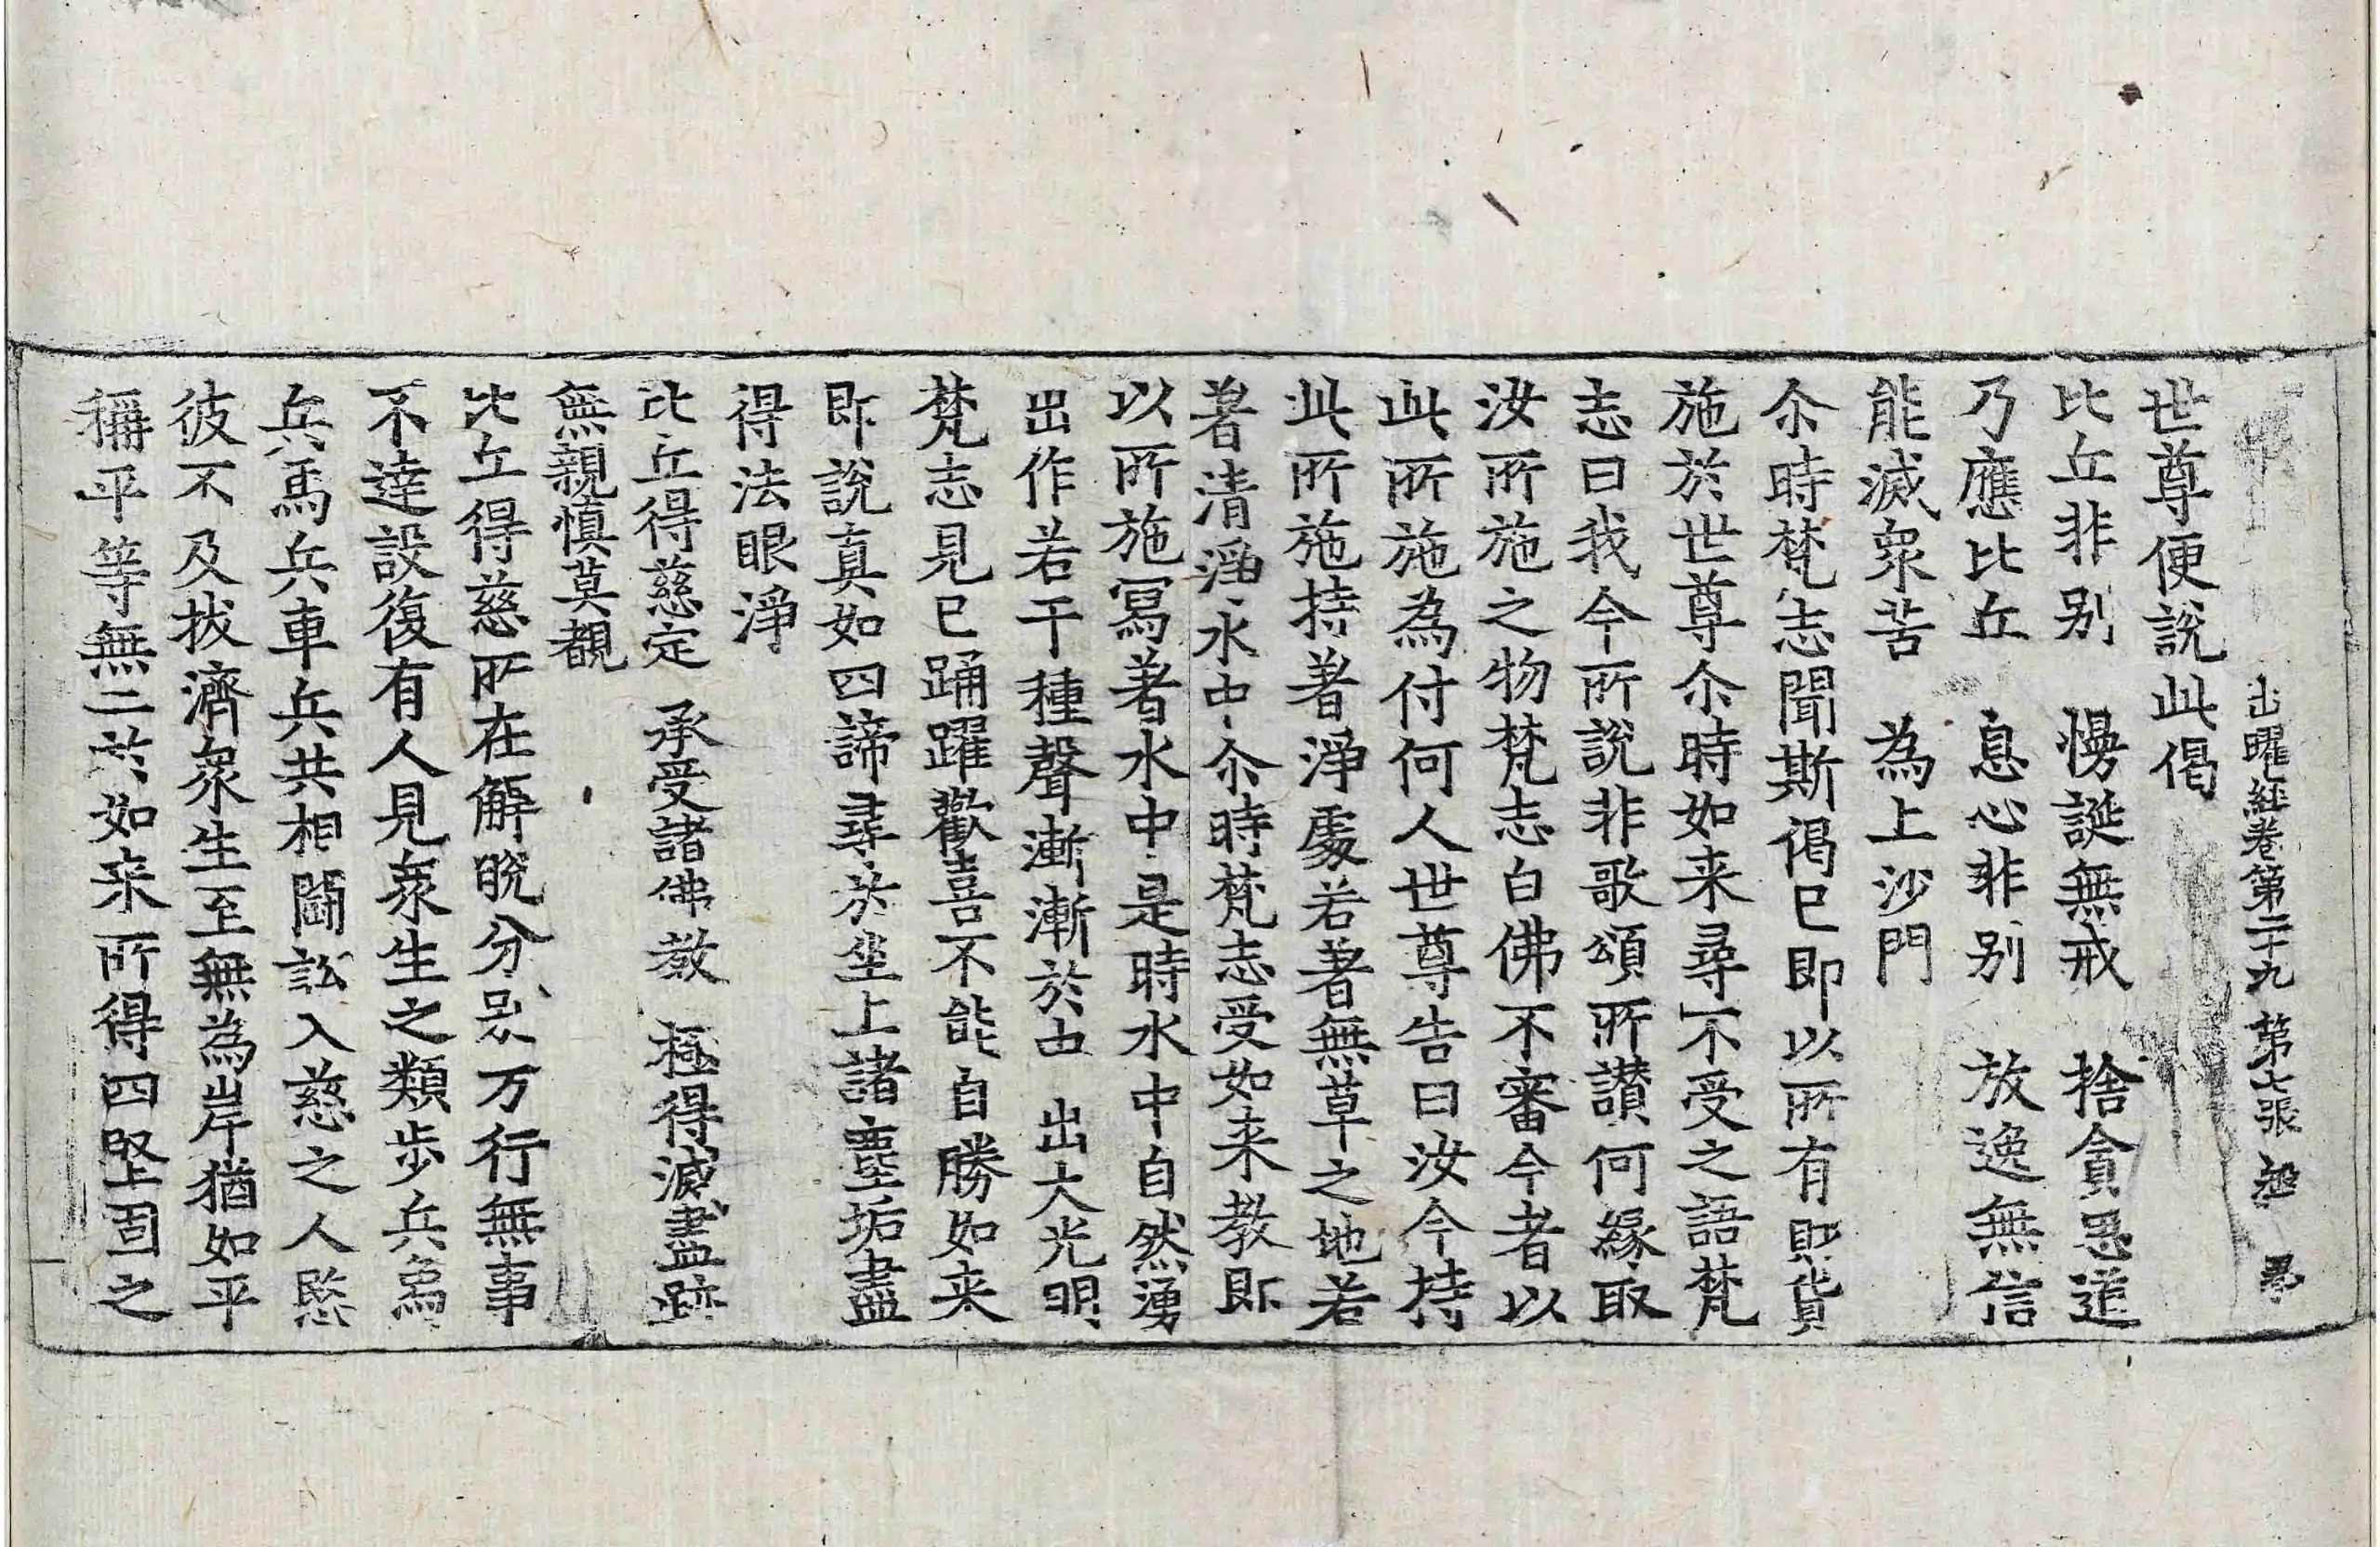 出曜經卷第二十九 第七張
世尊便說此偈
比丘非别 慢誕無戒 捨貪思道
乃應比丘 息心非别 放逸無信
能滅衆苦 為上沙門
尒時梵志聞斯偈已即以所有財貨
施於世尊尒時如来尋不受之語梵
志曰我今所說非歌頌所讃何緣取
汝所施之物梵志白佛不審今者以
此所施為付何人世尊告曰汝今持
此所施持著淨處若著無草之地若
著清淨水中尒時梵志受如来教即
以所施冩著水中是時水中自然湧
出作若干種聲漸漸於中 出大光明
梵志見已踊躍歡喜不能自勝如来
即說真如四諦尋於坐上諸塵垢盡
得法眼淨
比丘得慈定 承受諸佛教 極得滅盡跡
無親慎莫覩
比丘得慈所在解脫分别万行無事
不達設復有人見衆生之類步兵為
兵馬兵車兵共相鬪訟入慈之人愍
彼不及拔濟衆生至無為岸猶如平
稱平等無二於如来所得四堅固之